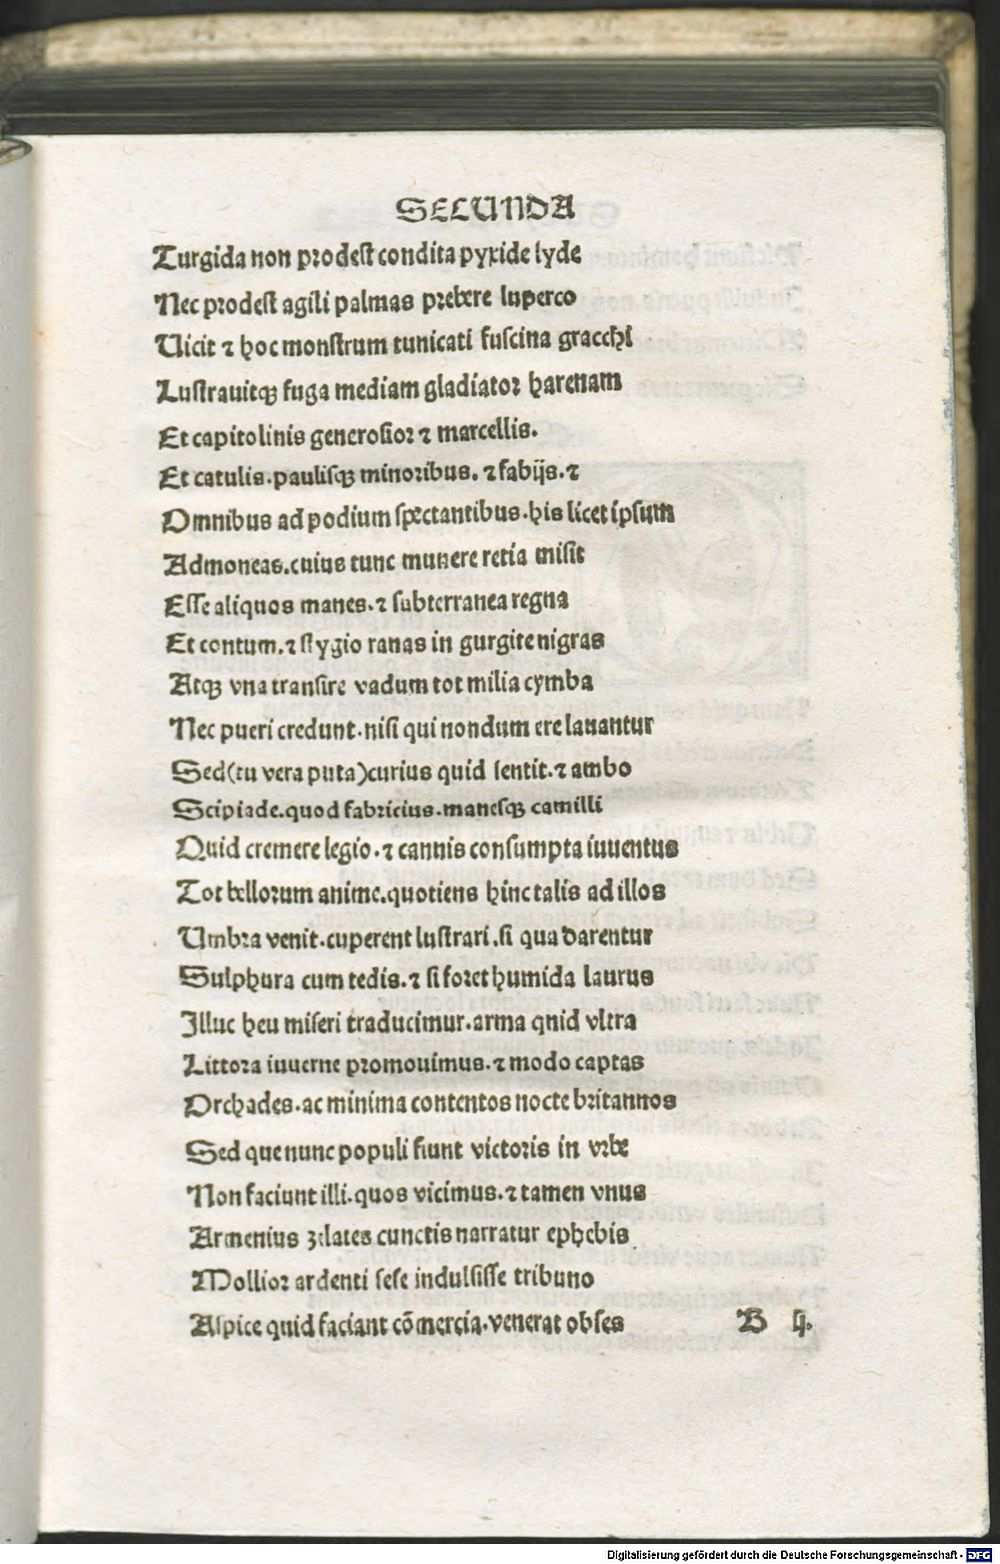 SECUNDA
Turgida non prodest condita pyxide lyde
Nec prodest agili palmas prebere luperco
Uicit ⁊ hoc monstrum tunicati fuscina gracchi
Lustrauitqꝫ fuga mediam gladiator harenam
Et capitolinis generosior ⁊ marcellis.
Et catulis.paulisqꝫ minoribus. ⁊ fabijs.⁊
Omnibus ad podium spectantibus.his licet ipsum
Admoneas.cuius tunc munere retia misit
Esse aliquos manes.⁊ subterranea regna
Et contum.⁊ stygio ranas in gurgite nigras
Atqꝫ vna transire vadum tot milia cymba
Nec pueri credunt.nisi qui nondum ere lauantur
Sed(tu vera puta)curius quid sentit.⁊ ambo
Scipiade.quod fabricius.manesqꝫ camilli
Quid cremere legio.⁊ cannis consumpta iuuentus
Tot bellorum anime.quotiens hinc talis ad illos
Umbra venit.cuperent lustrari.si qua darentur
Sulphura cum tedis.⁊ si foret humida laurus
Illuc heu miseri traducimur.arma qnid vltra
Littora iuuerne promouimus.⁊ modo captas
Orchades.ac minima contentos nocte britannos
Sed que nunc populi fiunt victoris in vrbe
Non faciunt illi.quos vicimus.⁊ tamen vnus
Armenius zelates cunctis narratur ephebis
Mollior ardenti sese indulsisse tribuno
Aspice quid faciant cōmercia.venerat obses B ij.
Digitalisierung gefördert durch die Deutsche Forschungsgemeinschaft - DFG